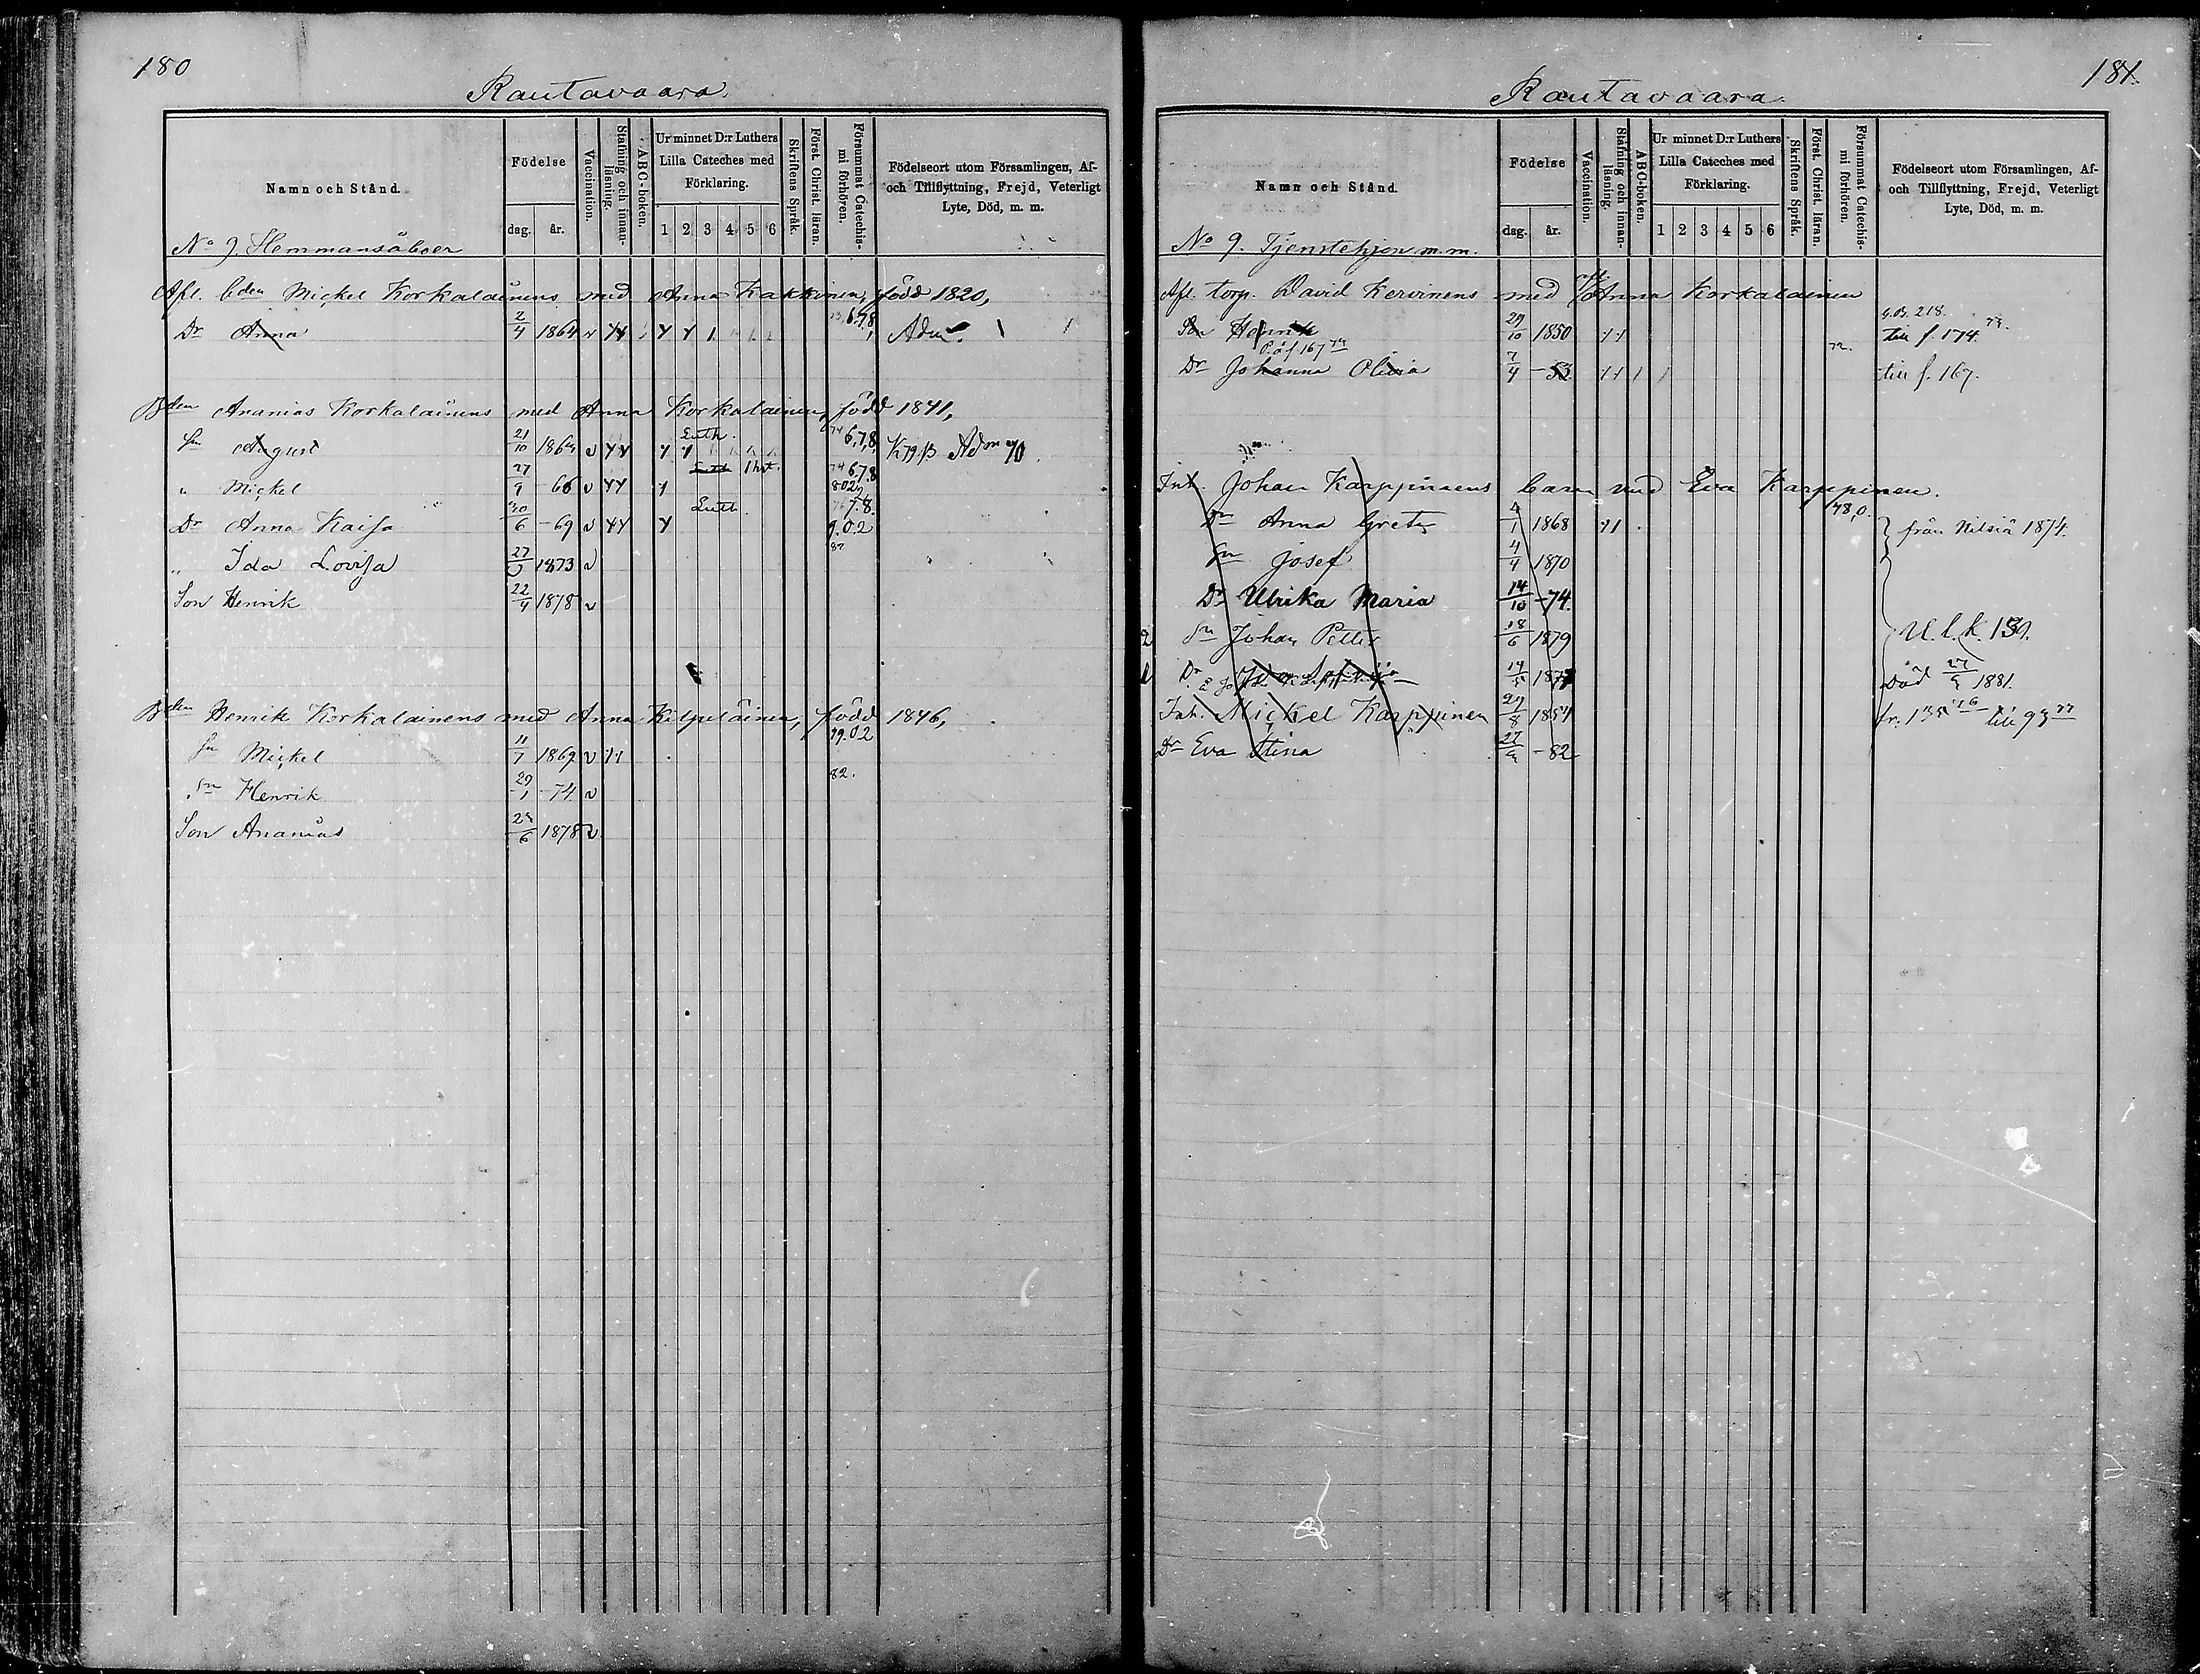 180
Rautavaara.
Namn och Stånd.
Födelse
dag. år.
Vaccination.
Stafning och innanläsning.
ABC-boken.
Ur minnet D:r Luthers Lilla Cateches med Förklaring.
1 2 3 4 5 6
Skriftens Språk.
Först. Christ. läran.
Försummat Catechismi förhören.
Födelseort utom Församlingen, Af- och Tillflyttning, Frejd, Veterligt Lyte, Död, m. m.
No 9. Hemmansåboer
Afl. bden Mickel Korkalainens med Anna Kakkinen, född 1820,
Dr Anna 2/4 1864 6,7,8
Bden Ananias Korkalainens med Anna Korkalainen, född 1841,
Sn August 21/10 1864 Luth. 74 6,7,8
" Mickel 27/9 66 Luth 74 6.7.8
Dr Anna Kaisa 30/6 -69 Luth. 7.8. 9.0.2
" Ida Lovisa 1873 82
Son Henrik 22/4 1878
Bden Henrik Korkalainens med Anna Kilpeläinen, född 1846,
Sn Mickel 11/7 1869 79.02
Sn Henrik 29/1 -74 82.
Son Ananias 1878
181.
Rautavaara.
Namn och Stånd.
Födelse
dag. år.
Vaccination.
Stafning och innanläsning.
ABC-boken.
Ur minnet D:r Luthers Lilla Cateches med Förklaring.
1 2 3 4 5 6
Skriftens Språk.
Först. Christ. läran.
Försummat Catechismi förhören.
Födelseort utom Församlingen, Af- och Tillflyttning, Frejd, Veterligt Lyte, Död, m. m.
No 9. Tjenstehjon m.m.
Afl. torp. David Kervinens med Anna Korkalainen
Son Henrik 29/10 1850 till f. 174.
Dr Johanna Olivia 7/4 -53 72. till f. 167.
Inh. Johan Karppinens barn med Eva Karppinen.
Dr Anna Greta 1868 från Nilsiä 1874.
Sn Josef 4/4 1870
Dr Ulrika Maria 14/10 -74.
2 Sn Johan Petter 18/6 1879
1 Dr Död 1881.
Inh. Mickel Karppinen 29/8 1854
Dr Eva Stina -82